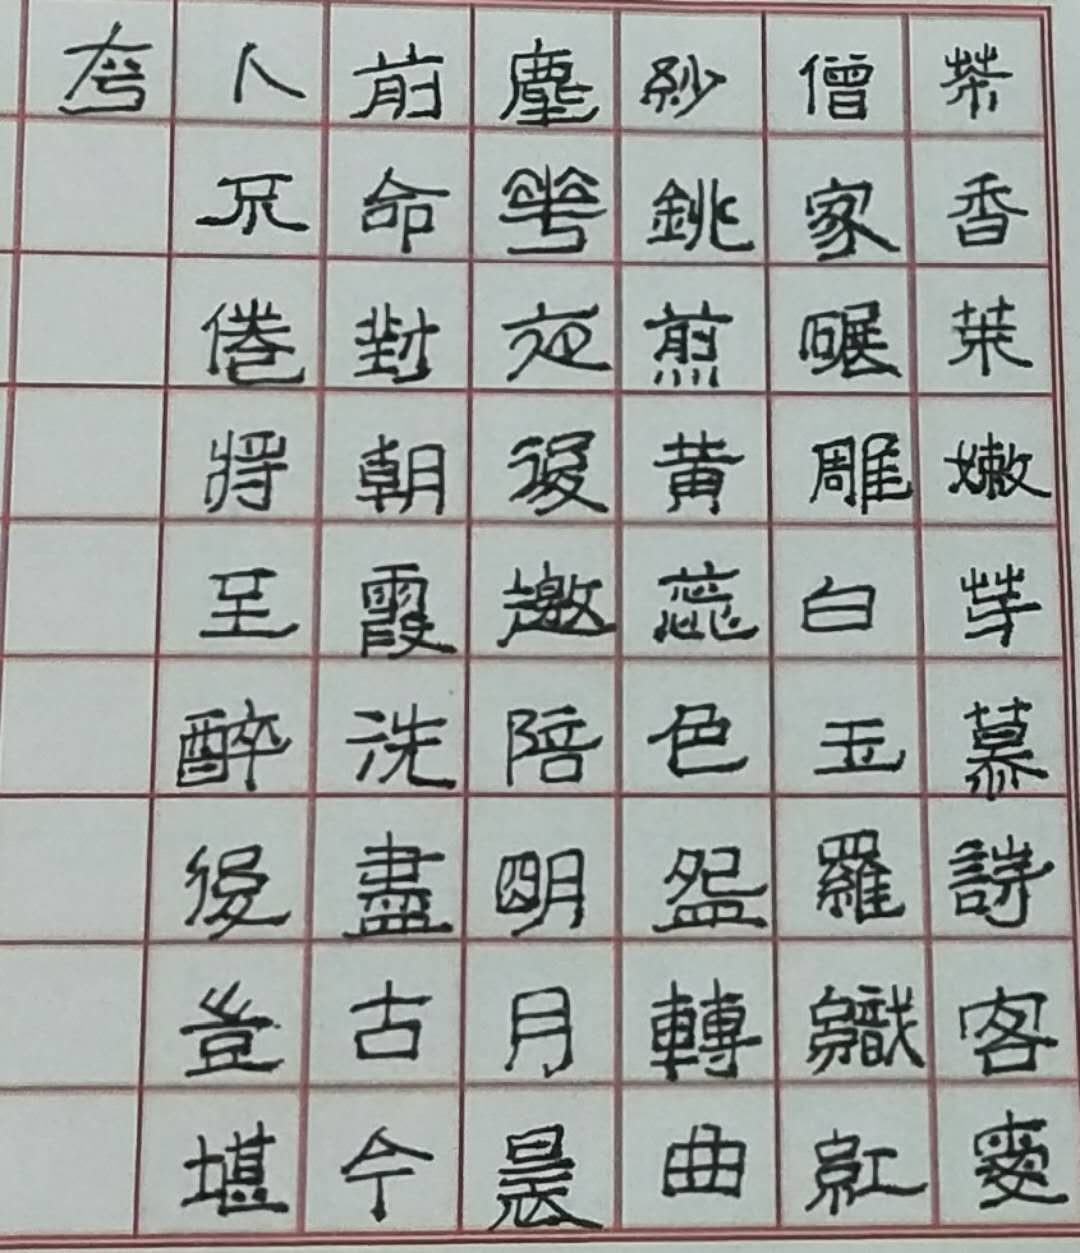 茶香葉嫩芽慕詩客愛
僧家碾雕白玉羅織紅
紗銚煎黄蕊色盌轉曲
塵華夜後邀陪明月晨
前命對朝霞洗盡古今
人不倦將至醉後豈堪
夸